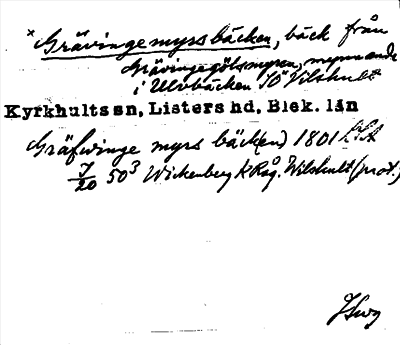 × Grävinge myrsbäcken, bäck från
Grävingegölsmyren, mynnande
i Ulvbäcken SÖ Vilshult
Kyrkhults sn, Listers hd, Blek. län
Gräfwinge myrs bäck(en) 1801 LSA
J/20 50³ Wickenberg KRåg. Wilshult (prot.)